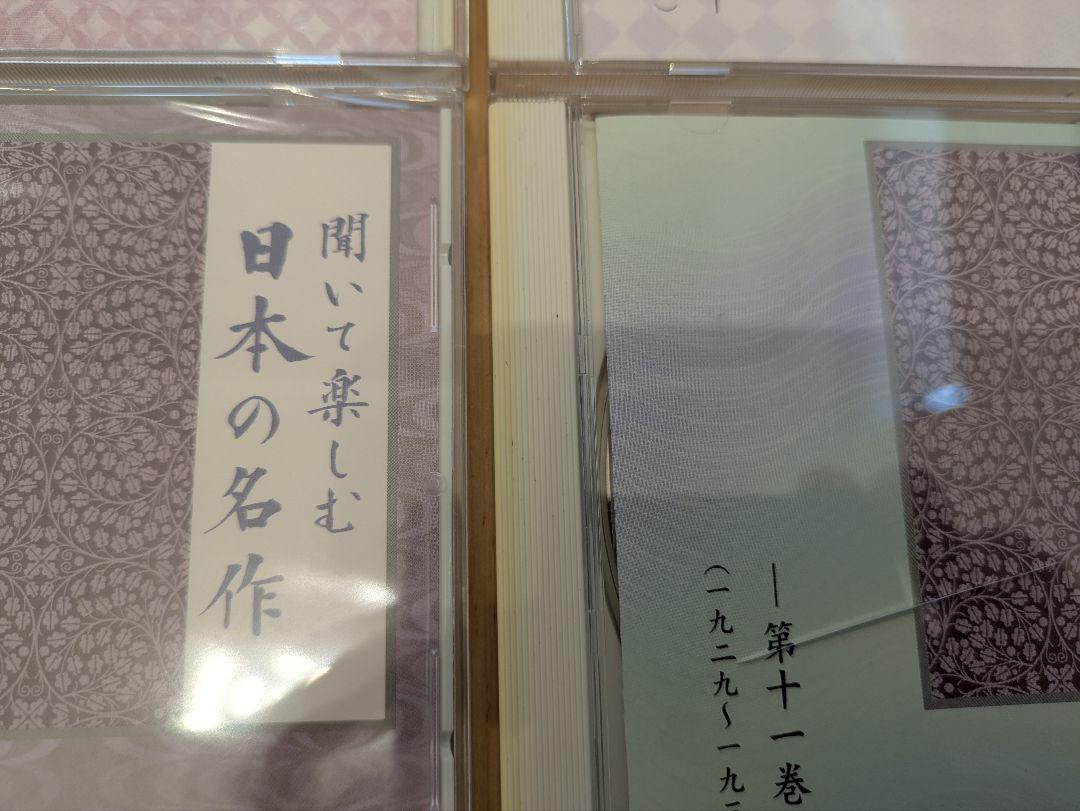 聞いて楽しむ
日本の名作
―第十一巻
(一九二九～一九三